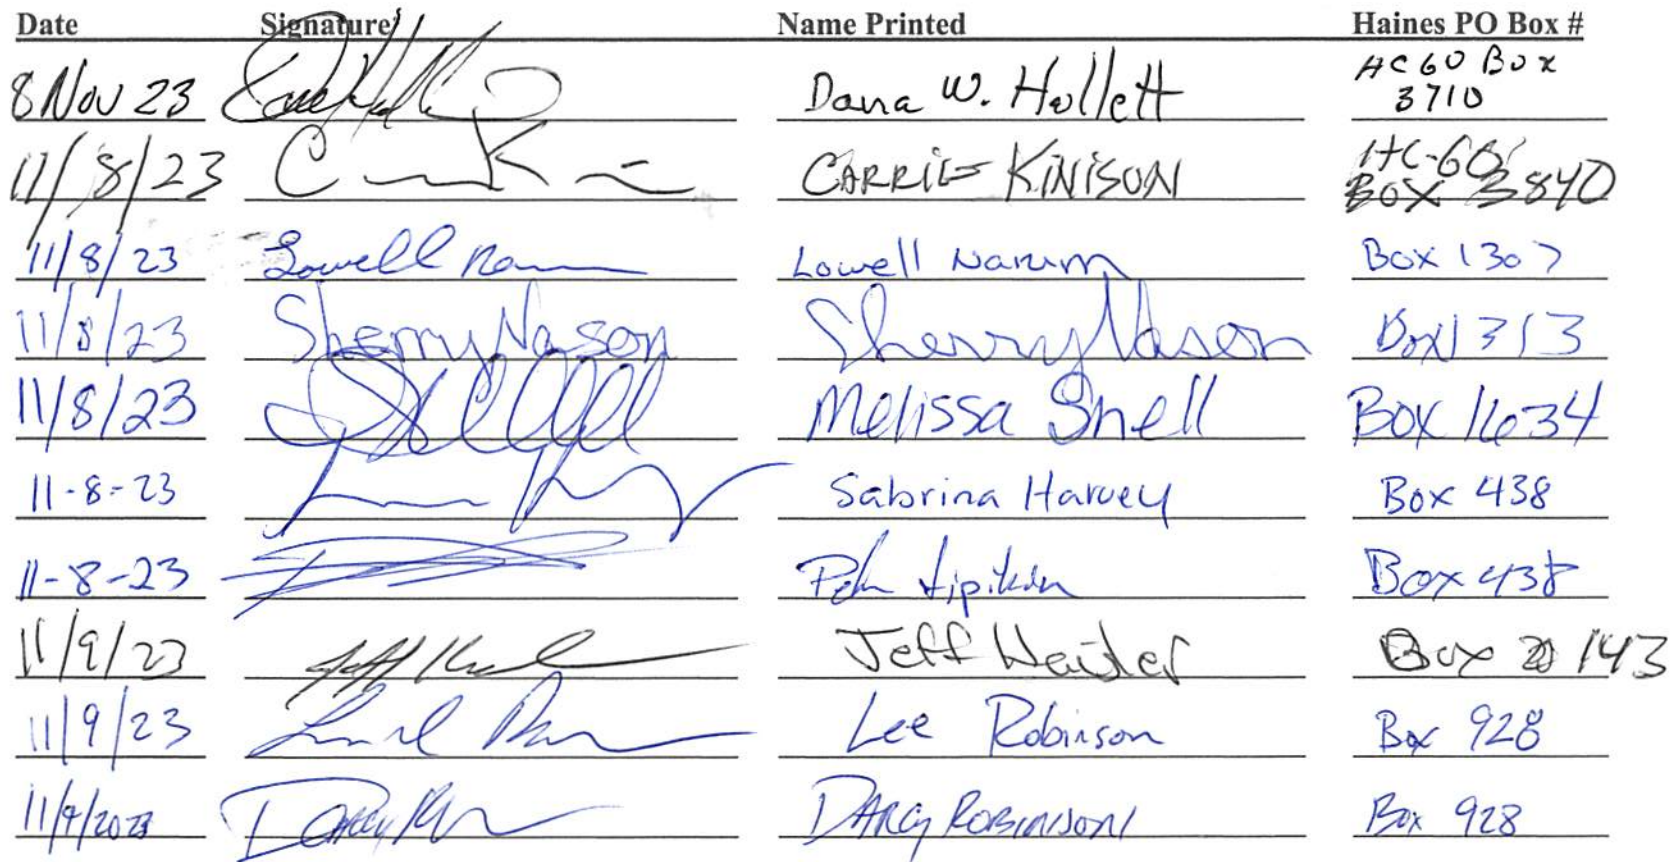 Date Signature Name Printed Haines PO Box #
8 Nov 23 Dana W. Hallett HC 60 Box
3710
11/8/23 CARRIE KINISON HC-60
BOX 3840
11/8/23 Lowell Lowell Narum Box 1307
11/8/23 Sherry Nason Sherry Nason Box 1313
11/8/23 Melissa Snell Box 1634
11-8-23 Sabrina Harvey Box 438
11-8-23 Box 438
11/9/23 Jeff Box 143
11/9/23 Lee Robinson Box 928
11/9/2023 DARCY ROBINSON Box 928